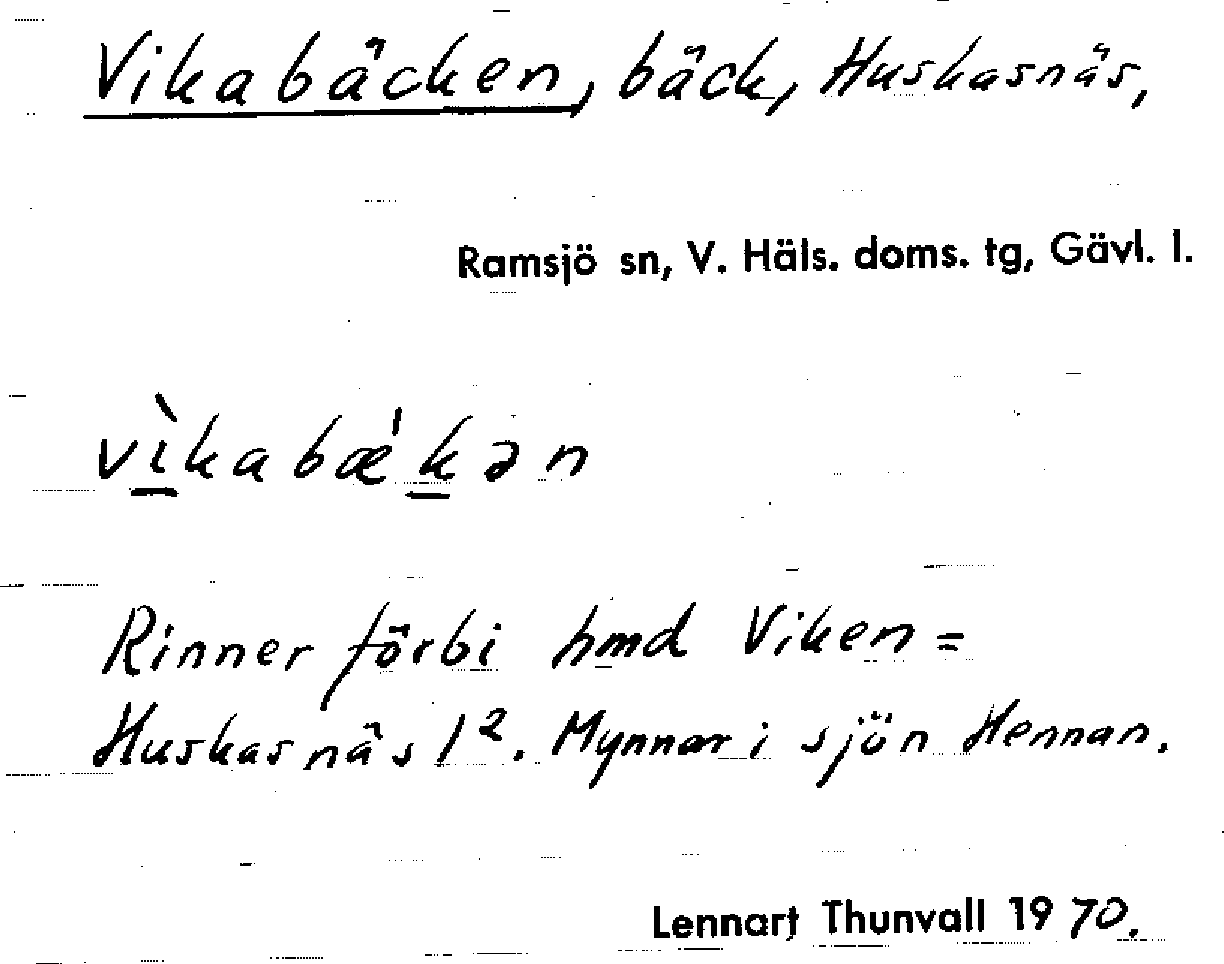 Vikabäcken, bäck, Huskasnäs,
Ramsjö sn, V. Häls. doms. tg, Gävl. l.
vìkabæ'kən
Rinner förbi hmd Viken =
Huskasnäs 1². Mynnar i sjön Hennan.
Lennart Thunvall 1970.